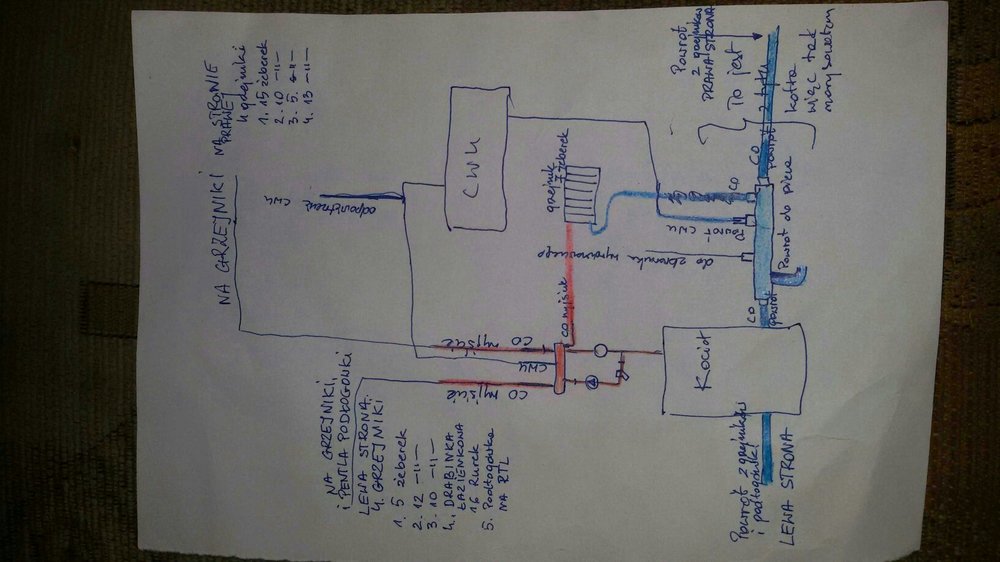 NA GRZEJNIKI NA STRONIE
PRAWEJ
4 grzejniki
1. 15 żeberek
2. 10 -II-
3. 5. -II-
4. 13 -II-
odpowietrznik
CWU
CWU
grzejnik
7 żeberek
NA GRZEJNIKI,
i PENTLA PODŁOGÓWKI
LEWA STRONA.
4. GRZEJNIKI
1. 5 żeberek
2. 12 -II-
3. 10 -II-
4. DRABINKA
ŁAZIENKOWA
16 Rurek
5. Podłogówka
NA RTL
CO wyjście
CWU
CO wyjście
CO wyjście
do zbiornika wyrównawczego
Powrót CWU
CO
Powrót
z grzejników
PRAWA STRONA
To jest
z tyłu
kotła
więc tak
narysowałem
CO
Powrót
Powrót do pieca
CO
Powrót
Kocioł
Powrót z grzejników
i podłogówki
LEWA STRONA